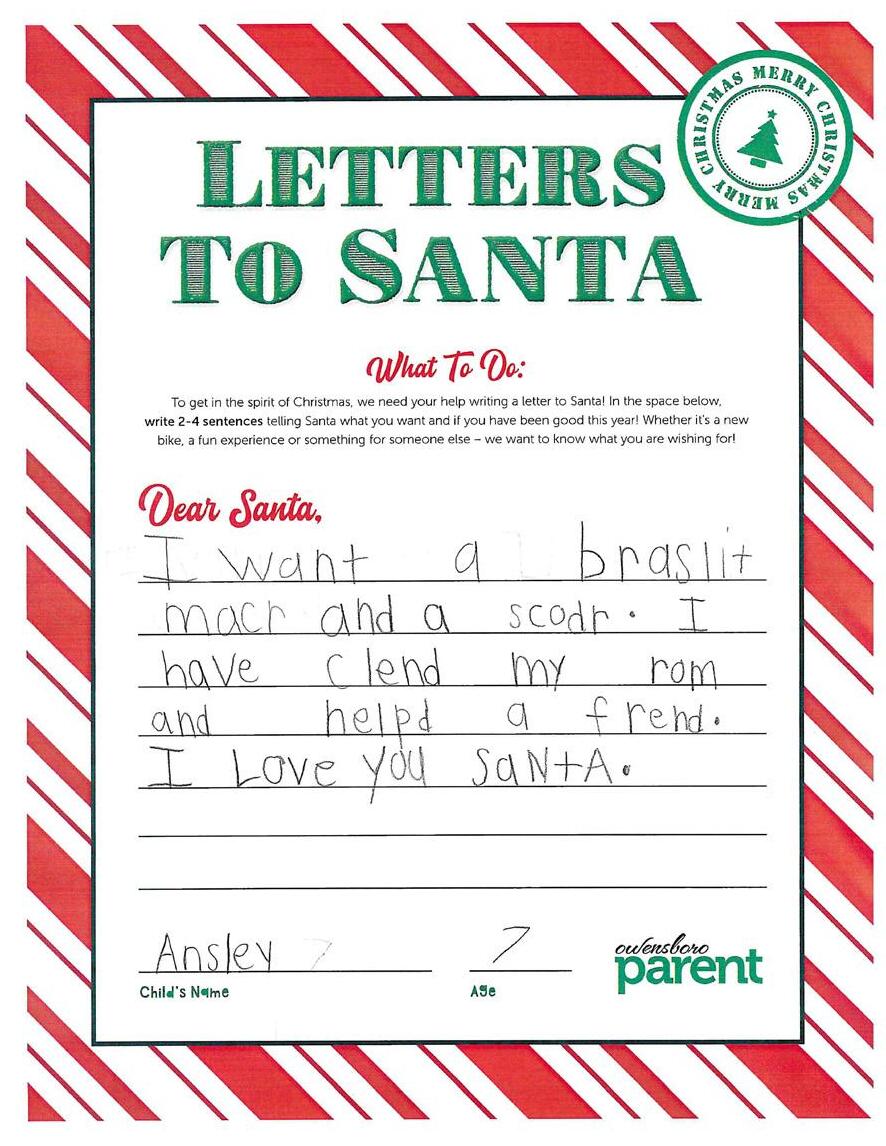 MERRY CHRISTMAS MERRY CHRISTMAS
LETTERS
TO SANTA
What To Do:
To get in the spirit of Christmas, we need your help writing a letter to Santa! In the space below,
write 2-4 sentences telling Santa what you want and if you have been good this year! Whether it's a new
bike, a fun experience or something for someone else – we want to know what you are wishing for!
Dear Santa,
I want a braslit
macr and a scodr. I
have clend my rom
and helpd a frend.
I Love you SaNtA.
Ansley 7
7
Child's Name
Age
owensboro
parent